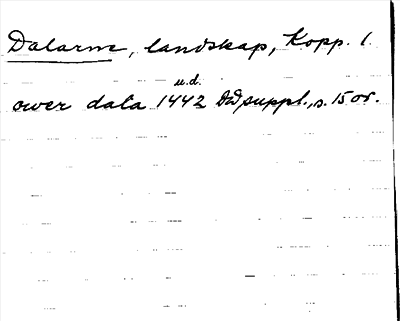 Dalarne, landskap, Kopp. l.
u.d.
over data 1442 Dd suppl., s. 15 or.